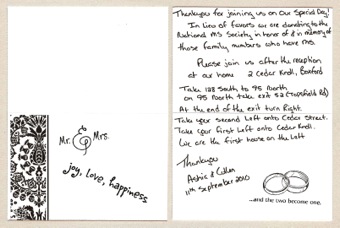 Mr. & Mrs.
joy, love, happiness
Thankyou for joining us on Our Special Day!
In lieu of favors we are donating to the
National MS Society in honor of & in memory of
those family members who have MS.
Please join us after the reception
at our home 2 Cedar Knoll, Boxford
Take 128 South to 95 North
on 95 North take exit 52 (Topsfield Rd)
At the end of the exit turn Right.
Take your second Left onto Cedar Street.
Take your first Left onto Cedar Knoll.
We are the first house on the Left
Thankyou
&
11th September 2010
...and the two become one.